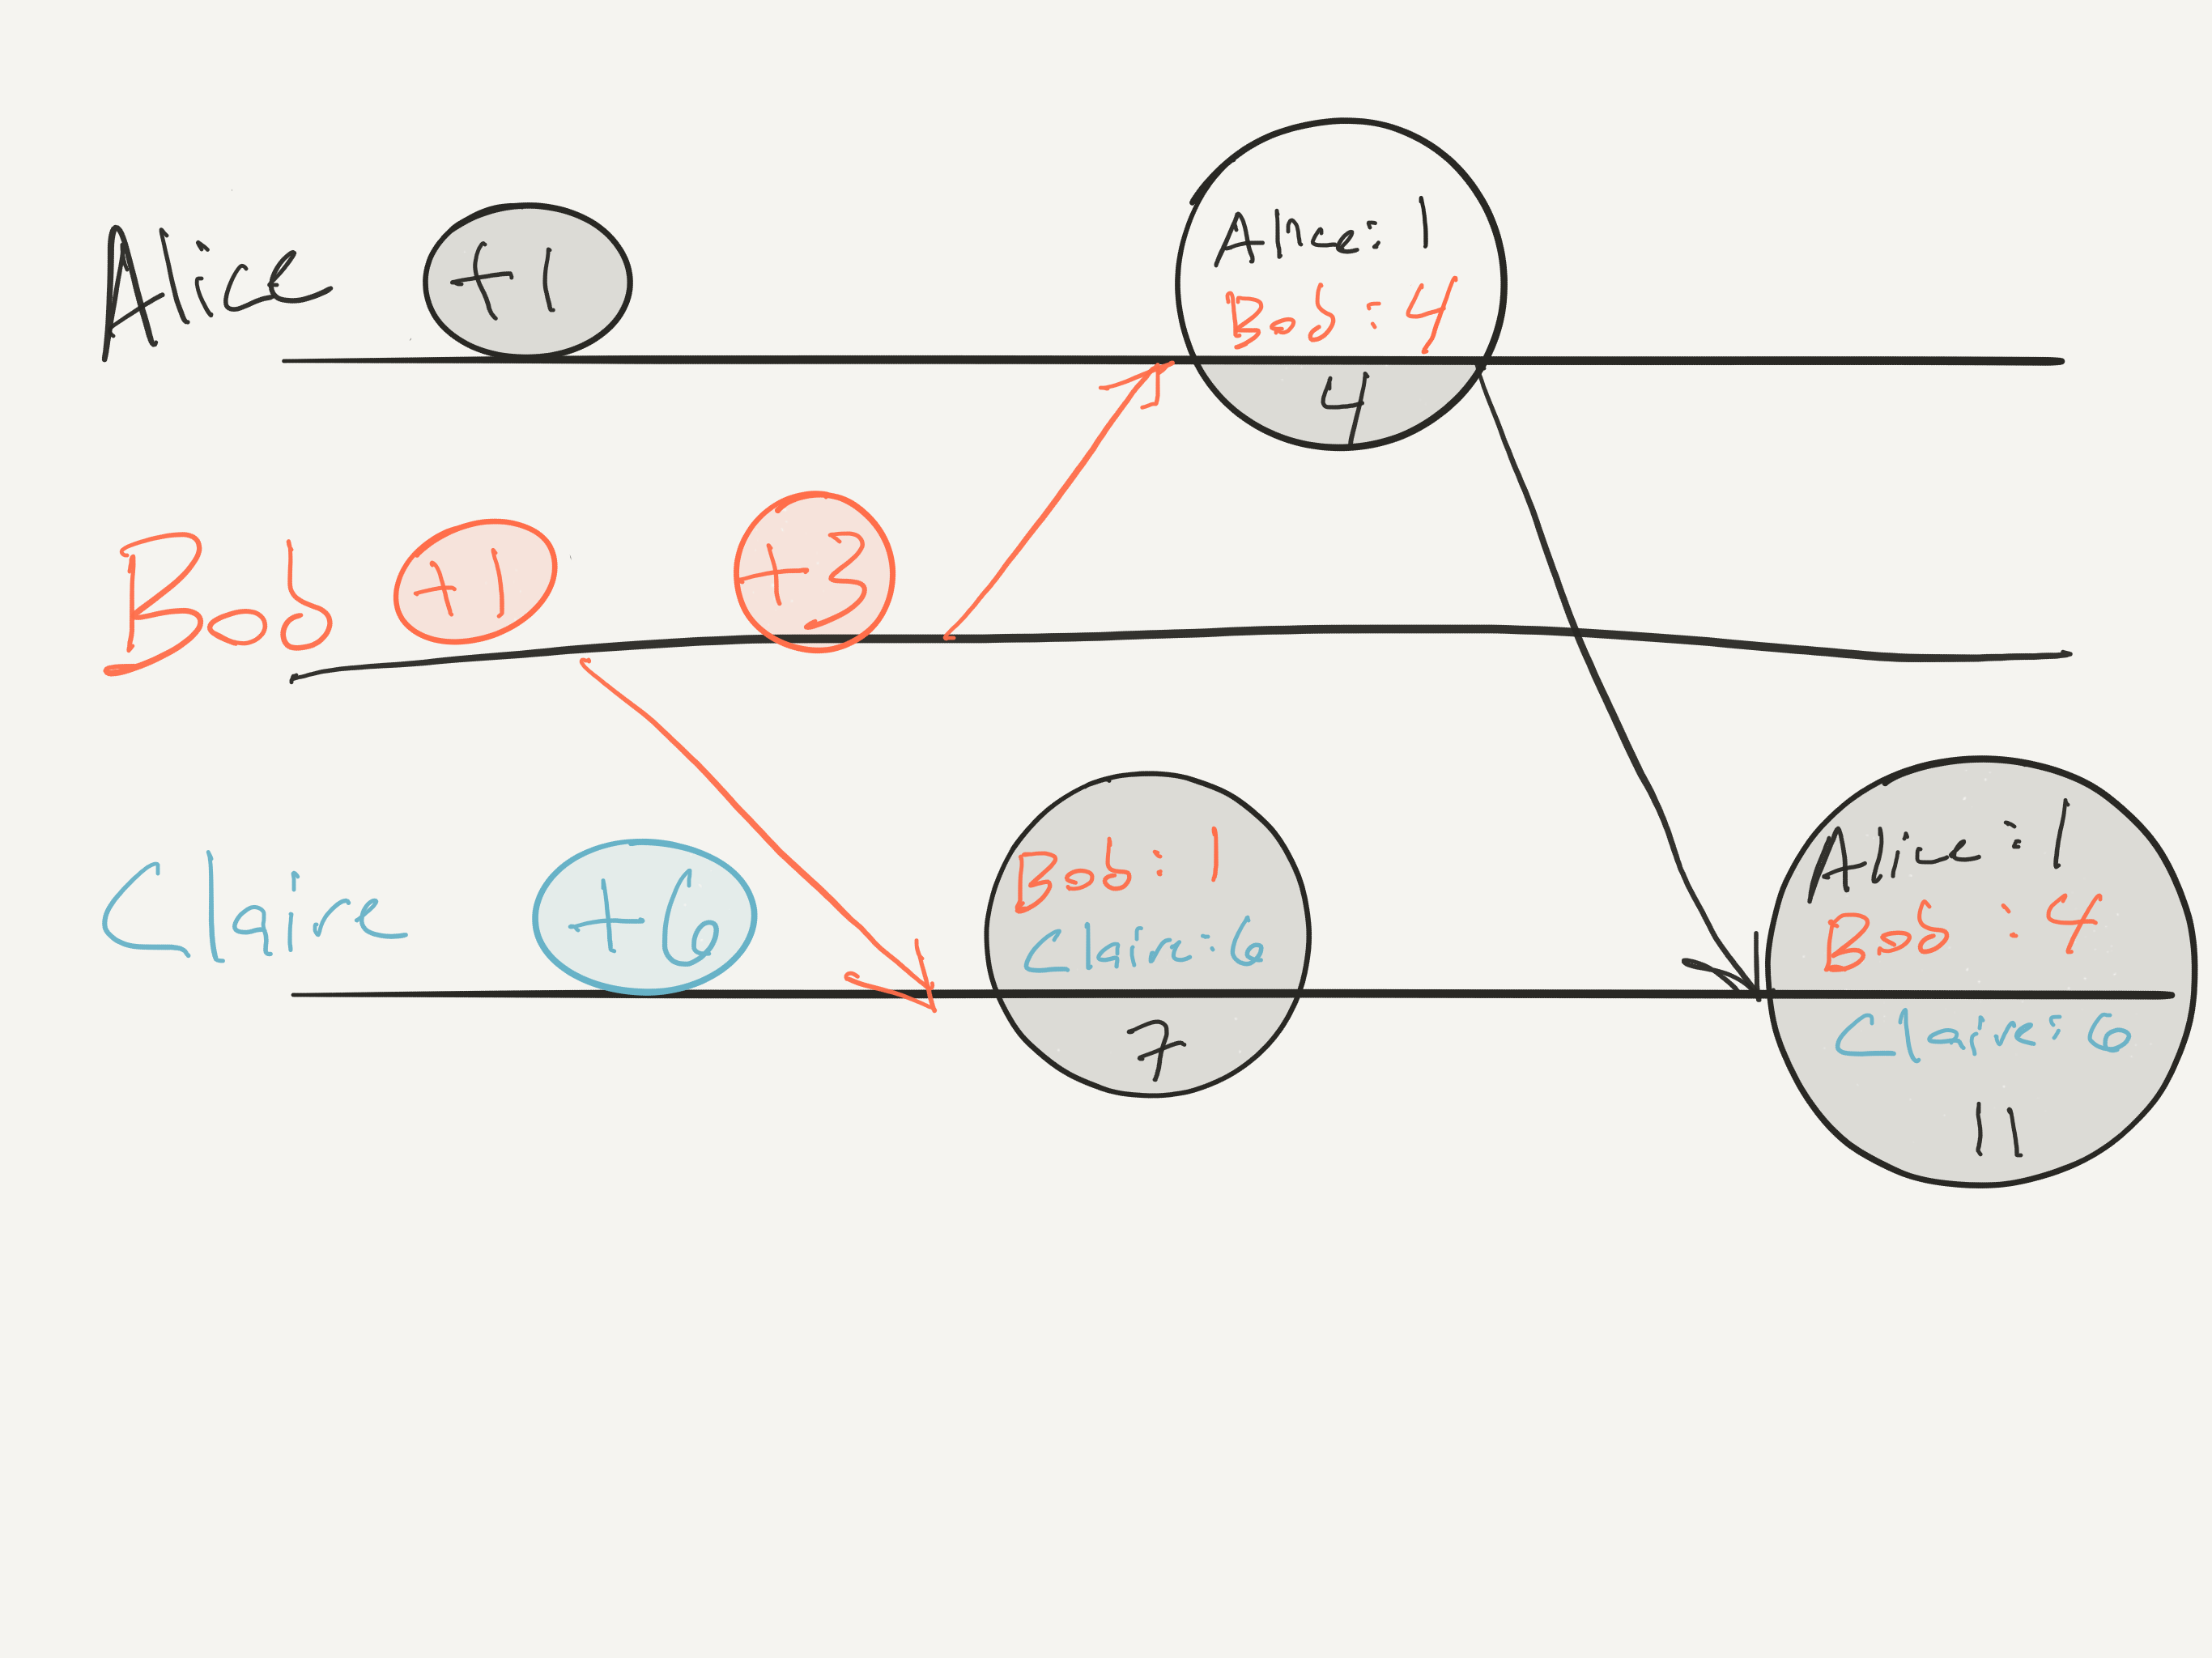 Alice
+1
Alice: 1
Bob: 4
4
Bob
+1
+3
Claire
+6
Bob: 1
Claire: 6
7
Alice: 1
Bob: 4
Claire: 6
11